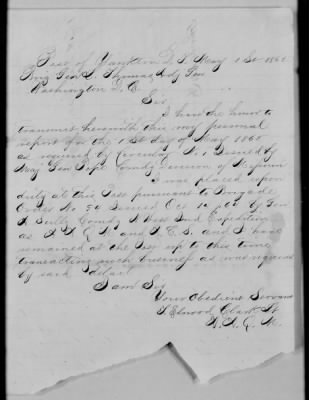 Post of Yankton D. T. May 1st 1865
Brig Gen L. Thomas Adj Gen
Washington D. C.
Sir
I have the honor to
transmit herewith this my personal
report for the 1st day of May 1865
as required by Circular No 1 Issued by
Maj Gen Pope Comdg Division of Missouri
I was placed upon
duty at this Post pursuant to Brigade
Order No 54 Issued Oct 1864 by Gen
A Sully Comdg N West Ind Expedition
as A. A. Q. M and A. C. S. and I have
remained at the Post up to this time
transacting such business as was required
by said detail
I am Sir
Your Obedient Servant
Elwood Clark Lt
A. A. Q. M.